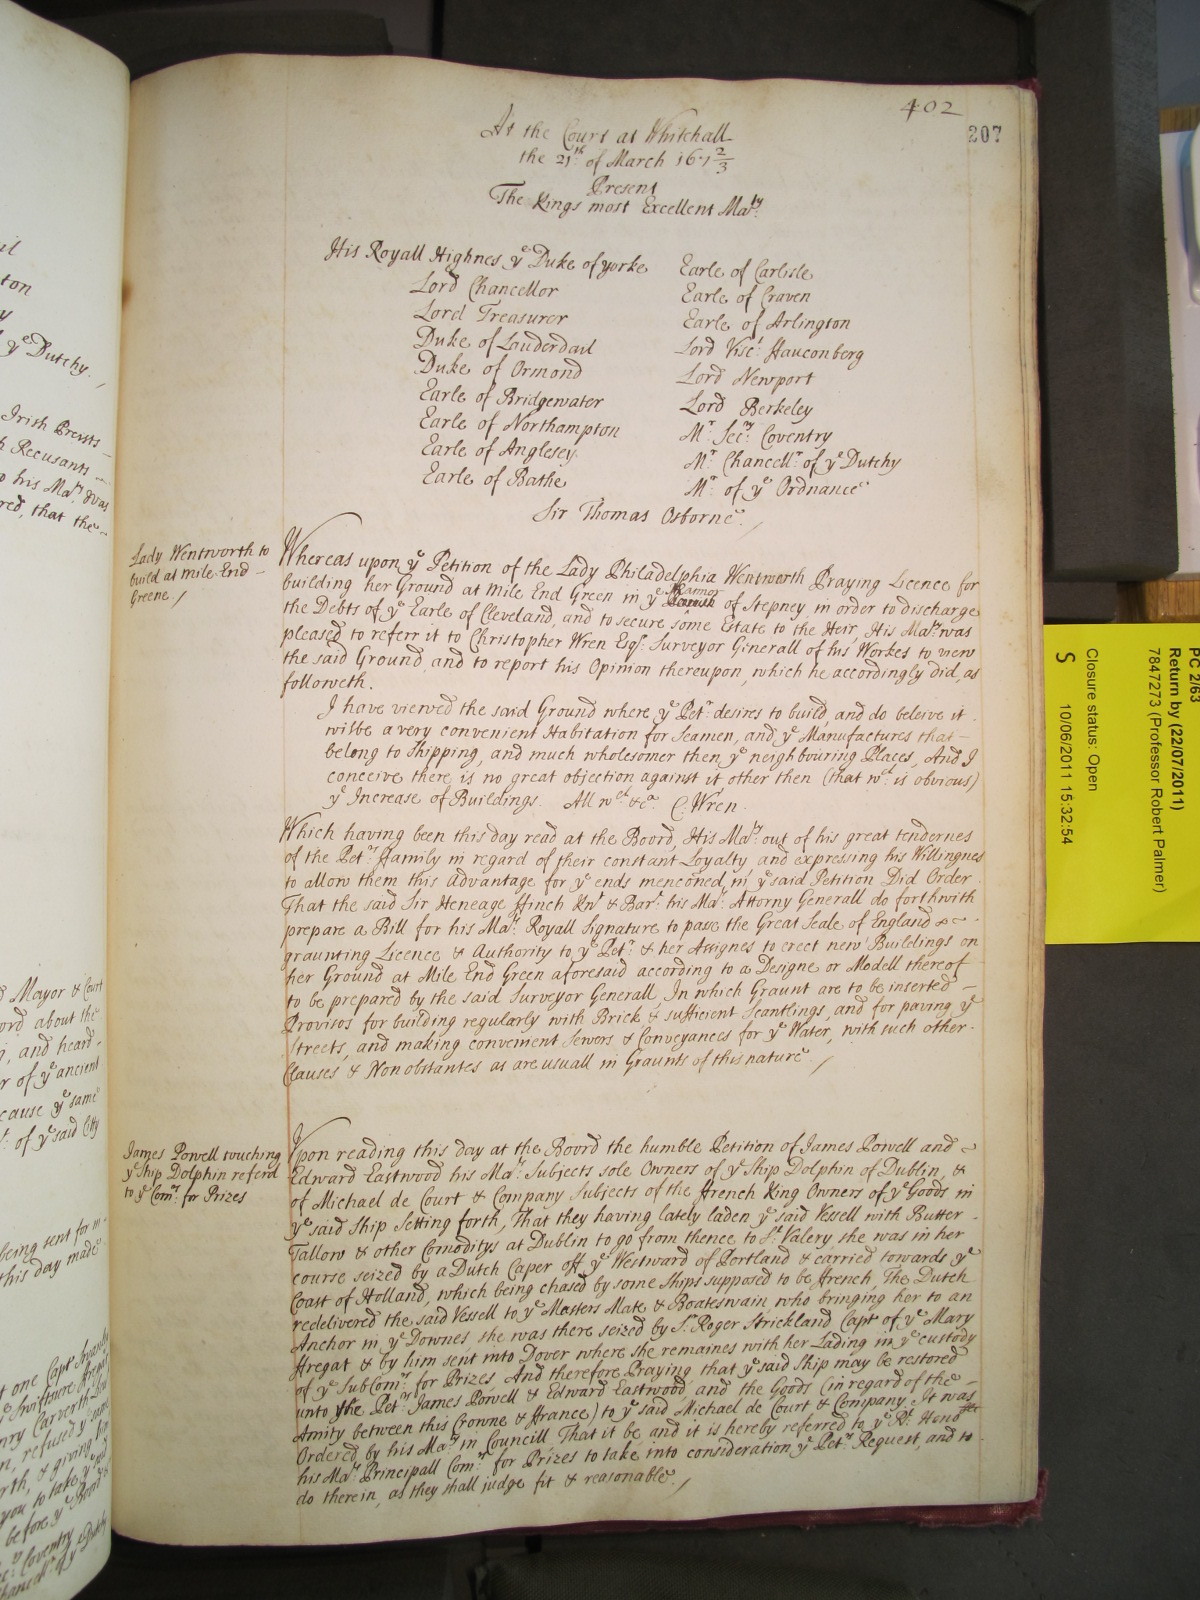 402
207
At the Court at Whitehall
the 21th of March 167 2/3
Present
The Kings most Excellent Maty:
His Royall Highnes ye Duke of yorke
Lord Chancellor
Lord Treasurer
Duke of Lauderdail
Duke of Ormond
Earle of Bridgewater
Earle of Northampton
Earle of Anglesey
Earle of Bathe
Earle of Carlisle
Earle of Craven
Earle of Arlington
Lord Visct: Hauconberg
Lord Newport
Lord Berkeley
Mr: Secry: Coventry
Mr: Chancellr: of ye Dutchy
Mr: of ye Ordnance
Sir Thomas Osborne
Lady Wentworth to
build at Mile End
Greene
Whereas upon ye Petition of the Lady Philadelphia Wentworth Praying Licence for
building her Ground at Mile End Green in ye Mannor of Stepney in order to discharge
the Debts of ye Earle of Cleveland, and to secure some Estate to the Heir, His Maty: was
pleased to referr it to Christopher Wren Esqr: Surveyor Generall of his Workes to view
the said Ground and to report his Opinion thereupon, which he accordingly did, as
followeth.
I have viewed the said Ground where ye Petr: desires to build, and do beleive it
wilbe a very convenient Habitation for Seamen, and ye Manufactures that
belong to Shipping, and much wholesomer then ye neighbouring Places, And I
conceive there is no great objection against it other then (that wch: is obvious)
ye Increase of Buildings. All wch &ca. C: Wren.
Which having been this day read at the Boord, His Maty: out of his great tendernes
of the Petrs: ffamily in regard of their constant Loyalty and expressing his Willingnes
to allow them this Advantage for ye ends menconed in ye said Petition Did Order
That the said Sir Heneage ffinch Knt & Bart: his Mats: Attorny Generall do forthwith
prepare a Bill for his Mats: Royall Signature to passe the Great Seale of England
graunting Licence & Authority to ye Petr: & her Assignes to erect new Buildings on
her Ground at Mile End Green aforesaid according to a Designe or Modell thereof
to be prepared by the said Surveyor Generall, In which Graunt are to be inserted
Provisos for building regularly with Brick & sufficient Scantlings, and for paving ye
Streets, and making convenient Sewers & Conveyances for ye Water, with such other
Clauses & Non obstantes as are usuall in Graunts of this nature.
James Powell touching
ye Ship Dolphin referd
to ye Comrs: for Prizes
Upon reading this day at the Boord the humble Petition of James Powell and
Edward Eastwood his Mats: Subjects sole Owners of ye Ship Dolphin of Dublin, &
of Michael de Court & Company Subjects of the ffrench King Owners of ye Goods in
ye said Ship Setting forth, That they having lately laden ye said Vessell with Butter
Tallow & other Comoditys at Dublin to go from thence to St: Valery she was in her
course seized by a Dutch Caper off ye Westward of Portland & carried towards ye
Coast of Holland, which being chased by some Ships supposed to be ffrench, The Dutch
redelivered the said Vessell to ye Masters Mate & Boateswain who bringing her to an
Anchor in ye Downes she was there seized by Sr: Roger Strickland Capt of ye Mary
ffregat & by him sent into Dover where she remaines with her Lading in ye custody
of ye SubComrs: for Prizes And therefore Praying that ye said Ship may be restored
unto the Petrs: James Powell & Edward Eastwood, and the Goods (in regard of the
Amity between this Crowne & ffrance) to ye said Michael de Court & Company. It was
Ordered by his Maty: in Councill That it be and it is hereby referred to ye Rt: Honoble
his Mats: Principall Comrs: for Prizes to take into consideration ye Petrs: Request, and to
do therein, as they shall judge fit & reasonable.
PC 2/63
Return by (22/07/2011)
7847273 (Professor Robert Palmer)
Closure status: Open
S 10/06/2011 15:32:54
il
ton
y
ye Dutchy.
Irish Preists
Recusants
his Maty: was
red, that the
Mayor & Court
ord about the
, and heard
r of ye ancient
cause ye same
of ye said Citty
being sent for in
this day made
one Capt
ye Swiftsure